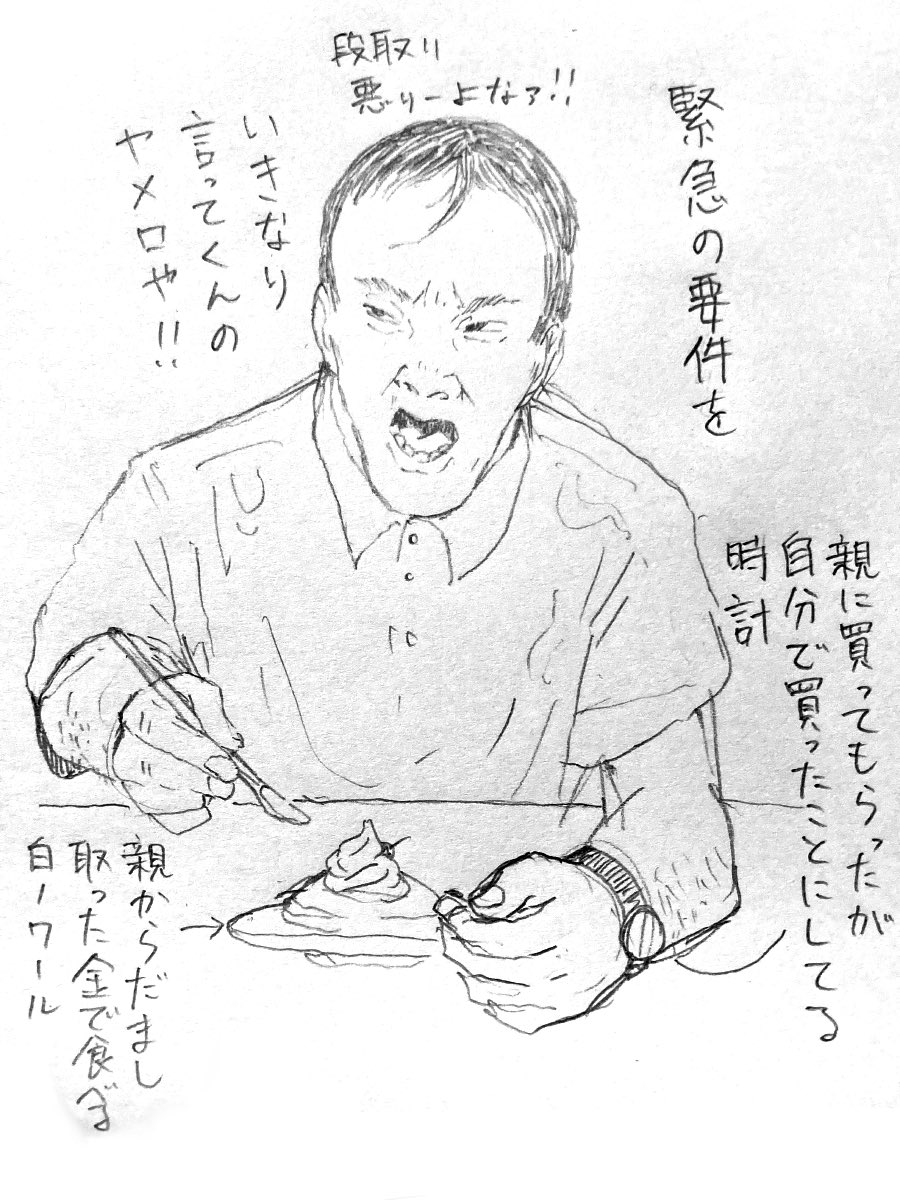 緊急の要件を
いきなり
言ってくんの
ヤメロや!!
段取り
悪りーよなァ!!
親に買ってもらったが
自分で買ったことにしてる
時計
親からだまし
取った金で食べる
白ノワール